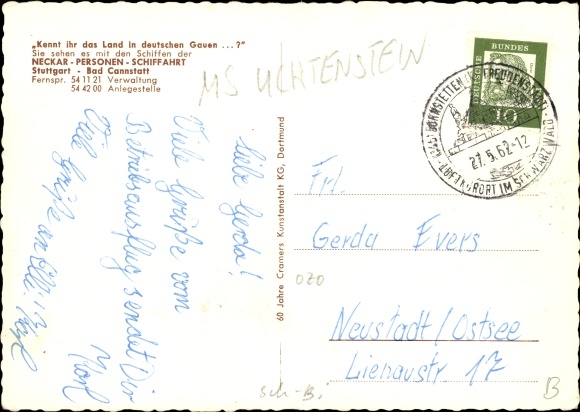 „Kennt ihr das Land in deutschen Gauen ...?"
Sie sehen es mit den Schiffen der
NECKAR - PERSONEN - SCHIFFAHRT
Stuttgart - Bad Cannstatt
Fernspr. 54 11 21 Verwaltung
54 42 00 Anlegestelle
MS LICHTENSTEIN
DEUTSCHE
BUNDES
10
BÖRNSTETTEN FREUDENSTADT
27.5.62-12
LUFTKURORT IM SCHWARZWALD
Liebe Gerda!
Viele Grüße vom
Betriebsausflug sendet Dir
Karl
Viele Grüße an
60 Jahre Cramers Kunstanstalt KG, Dortmund
Frl.
Gerda Evers
OZO
Neustadt/Ostsee
Lienaustr. 17
Sch-B.
B